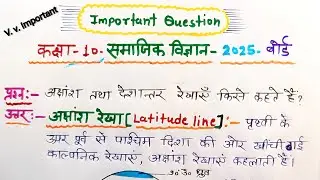 V.v. Important
Important Question
कक्षा-10. समाजिक विज्ञान- 2025. बोर्ड
प्रश्न:- अक्षांश तथा देशान्तर रेखाएँ किसे कहते हैं?
उत्तर:- अक्षांश रेखा [Latitude line]:- पृथ्वी के
ऊपर पूर्व से पश्चिम दिशा की ओर खींची गई
काल्पनिक रेखाएँ, अक्षांश रेखाएँ कहलाती हैं।